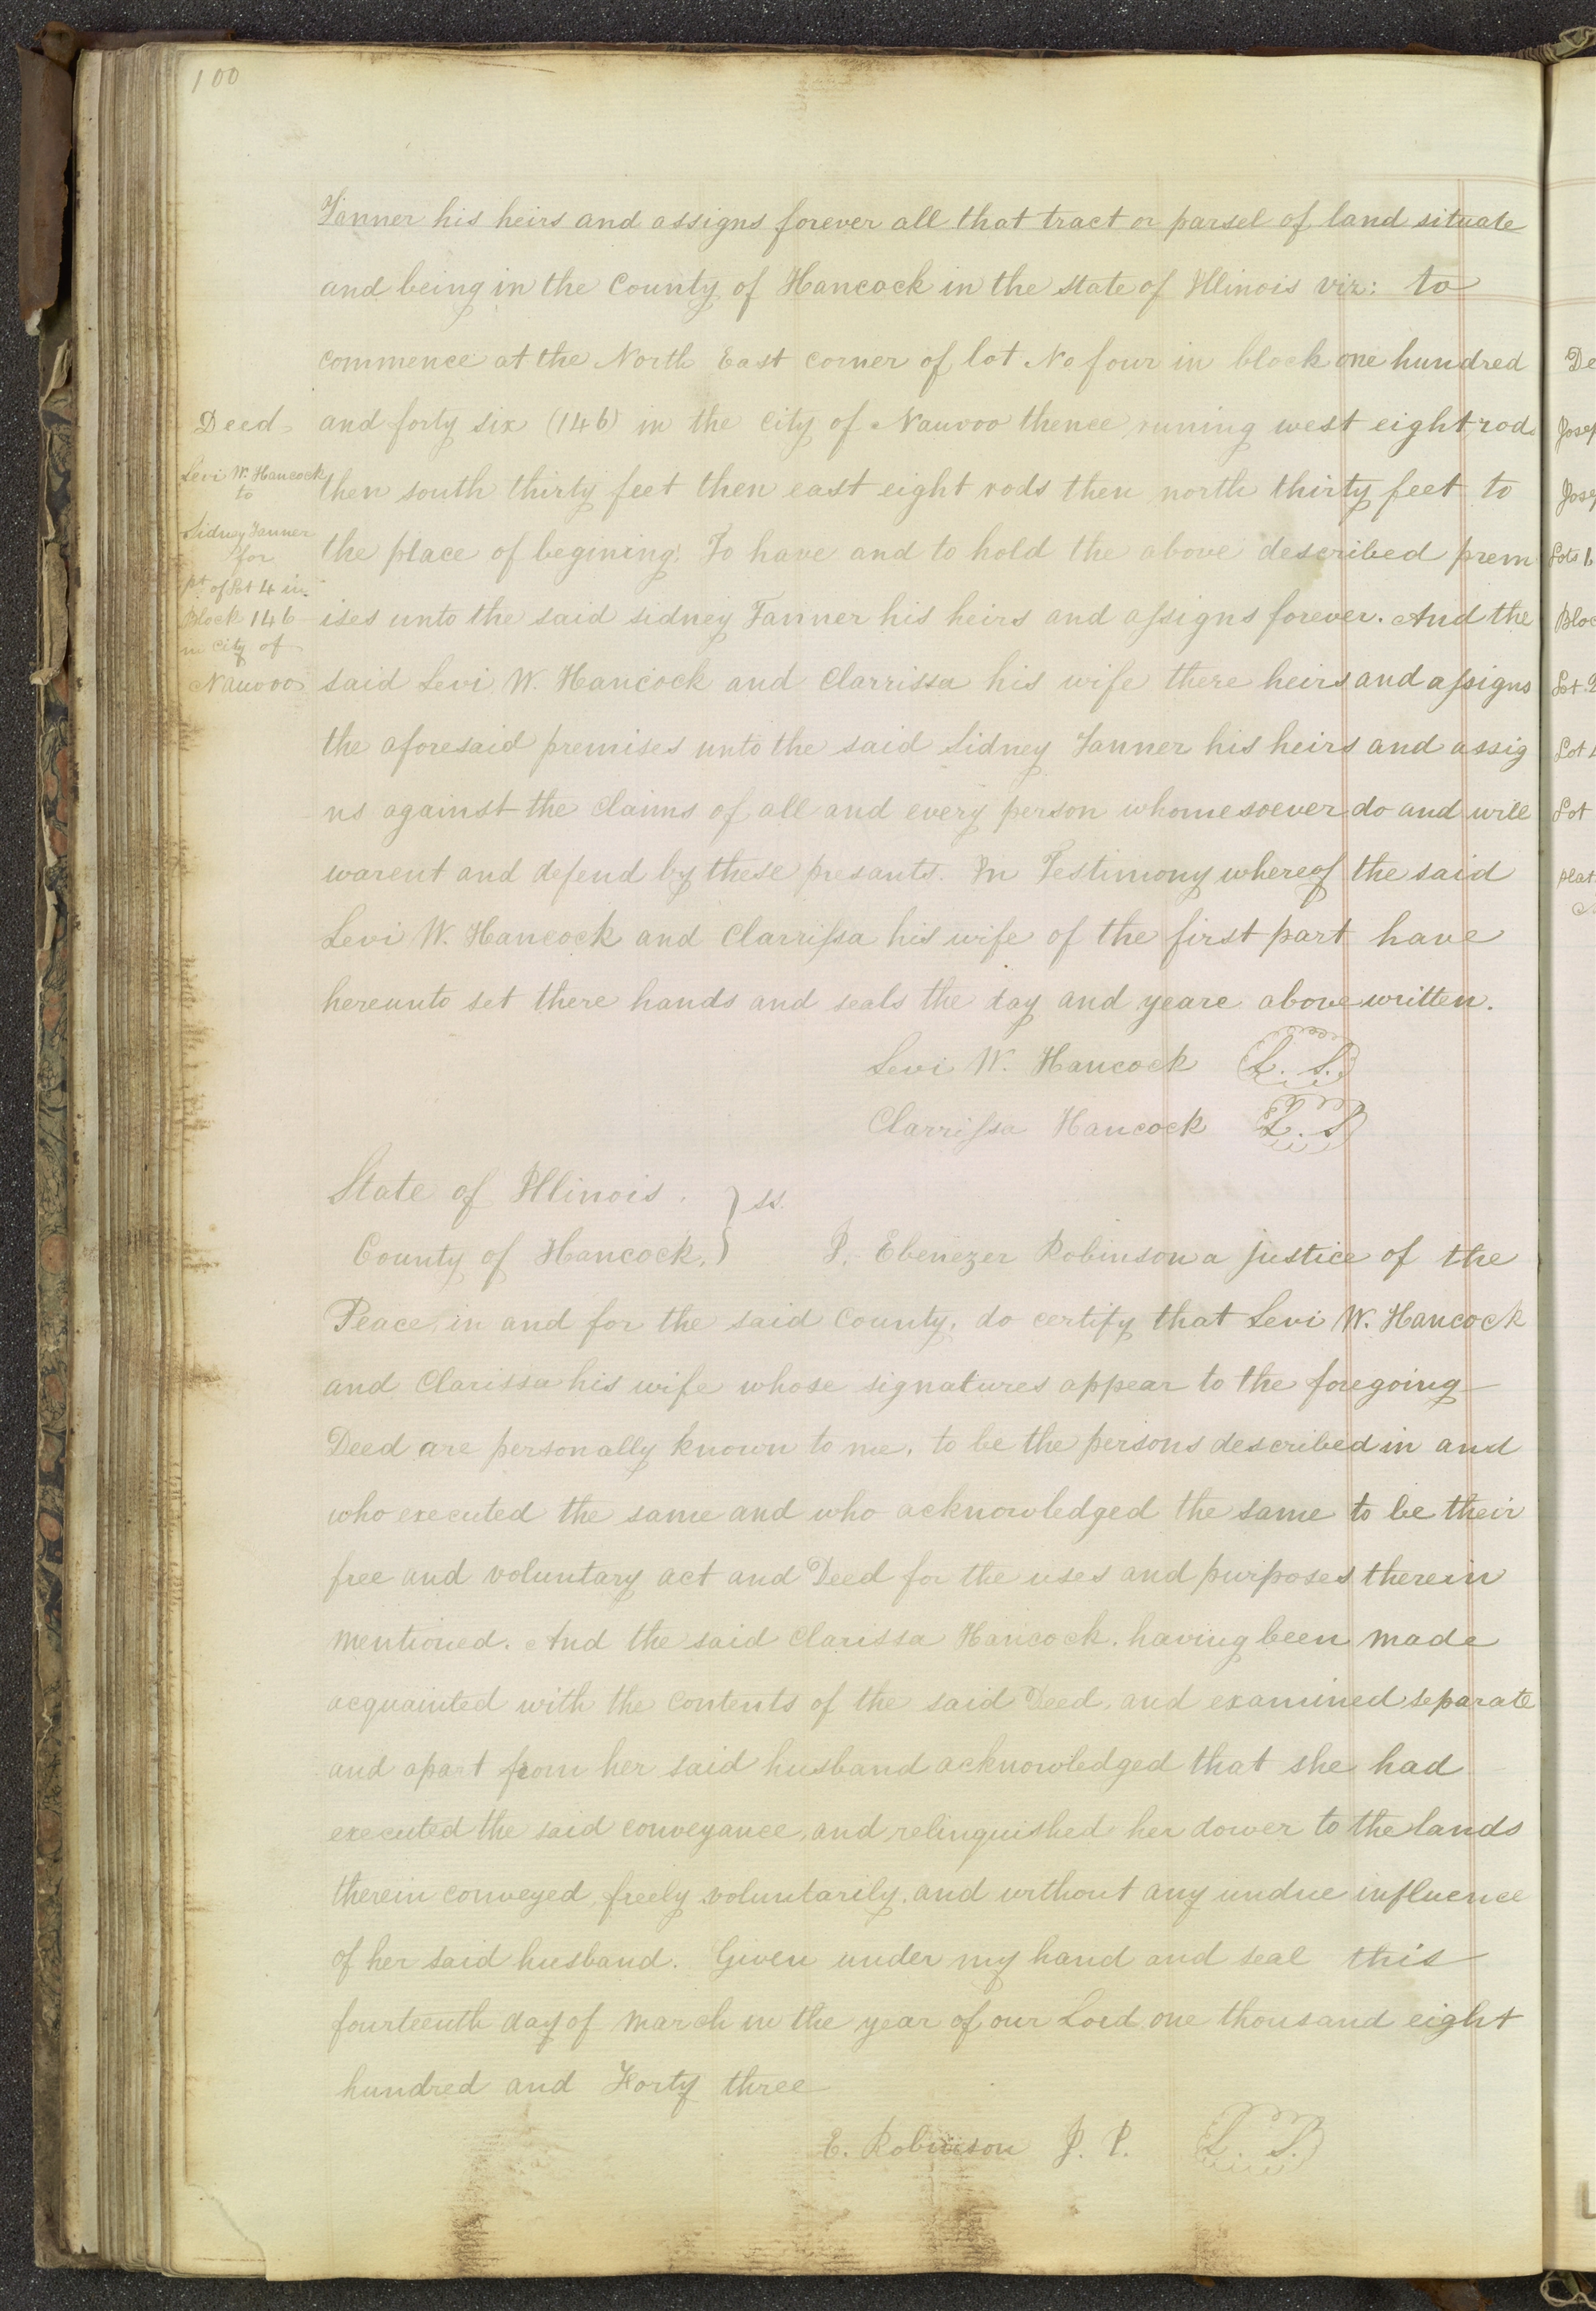 100
Tanner his heirs and assigns forever all that tract or parsel of land situate
and being in the County of Hancock in the State of Illinois viz: to
commence at the North East corner of lot No four in block one hundred
Deed
and forty six (146) in the City of Nauvoo thence runing west eight rods
Levi W. Hancock
to
then south thirty feet then east eight rods then north thirty feet to
Sidney Tanner
for
the place of begining. To have and to hold the above described prem
pt of Lot 4 in
Block 146
ises unto the said sidney Tanner his heirs and assigns forever. And the
in City of
Nauvoo
said Levi W. Hancock and Clarrissa his wife there heirs and assigns
the aforesaid premises unto the said Sidney Tanner his heirs and assig
ns against the claims of all and every person whomesoever do and will
warent and defend by these presants. In Testimony whereof the said
Levi W. Hancock and Clarrissa his wife of the first part have
hereunto set there hands and seals the day and yeare above written.
Levi W. Hancock L. S.
Clarrissa Hancock L. S
State of Illinois. } ss.
County of Hancock, } I. Ebenezer Robinson a justice of the
Peace, in and for the said County, do certify that Levi W. Hancock
and Clarissa his wife whose signatures appear to the foregoing
Deed are personally known to me, to be the persons described in and
who executed the same and who acknowledged the same to be their
free and voluntary act and Deed for the uses and purposes therein
mentioned. And the said Clarissa Hancock, having been made
acquainted with the contents of the said Deed, and examined separate
and apart from her said husband acknowledged that she had
executed the said conveyance, and relinquished her dower to the lands
therein conveyed, freely voluntarily, and without any undue influence
of her said husband. Given under my hand and seal this
fourteenth day of March in the year of our Lord one thousand eight
hundred and Forty three
E. Robinson J. P. L. S.
De
Josep
Jose
Lots 1
Bloc
Lot 2
Lot
Lot
plat